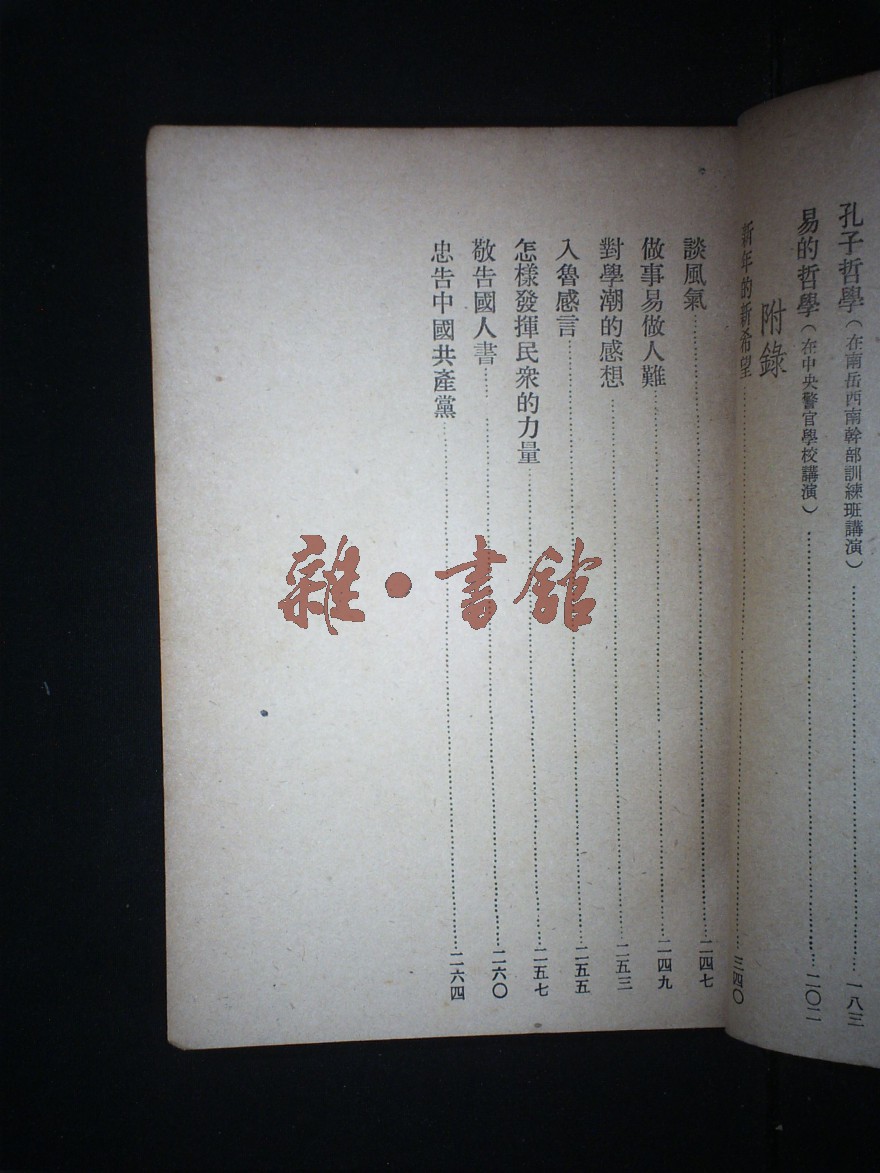 孔子哲學（在南岳西南幹部訓練班講演）……一八三
易的哲學（在中央警官學校講演）……二〇二
附錄
新年的新希望……三四〇
談風氣……二四七
做事易做人難……二四九
對學潮的感想……二五三
入魯感言……二五五
怎樣發揮民衆的力量……二五七
敬告國人書……二六〇
忠告中國共產黨……二六四
雜·書館